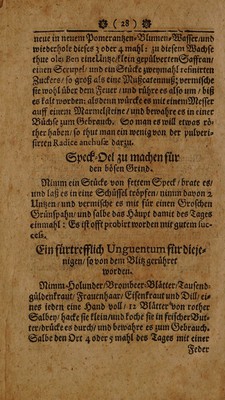 ( 28 )
neue in neuem Pomerantzen-Blumen-Wasser/und
wiederhole dieses 3 oder 4 mahl: zu diesem Wachse
thue ein klein Untzelein gepülverten Saffran/
einen Scrupel/ und ein Stücke zweymahl refinirten
Zuckers/ so groß als eine Muscatennuß; vermische
sie wohl über dem Feuer/ und rühre es also um/ biß
es kalt worden: alsdenn würcke es mit einem Messer
auff einem Marmelstein/ und bewahre es in einer
Büchse zum Gebrauch. So man es will etwas rö-
ther haben/ so thut man ein wenig von der pulveri-
sirten Radice anchusæ darzu.
Speck-Oel zu machen für
den bösen Grind.
Nimm ein Stücke von fettem Speck/ brate es/
und laß es in eine Schüssel tröpfen/ nimm davon 2
Untzen/ und vermische es mit für einen Groschen
Grünspahn/ und salbe das Haupt damit des Tages
einmahl: Es ist offt probirt worden mit gutem suc-
cess.
Ein fürtrefflich Unguentum für dieje-
nigen/ so von dem Blitz gerühret
worden.
Nimm Holunder/ Brombeer-Blätter/ Tausend-
güldenkraut/ Frauenhaar/ Eisenkraut und Dill/ ei-
nes ieden eine Hand voll/ 12 Blätter von rother
Salbey/ hacke sie klein/und koche sie in frischer But-
ter/drücke es durch/ und bewahre es zum Gebrauch.
Salbe den Ort 4 oder 5 mahl des Tages mit einer
Feder